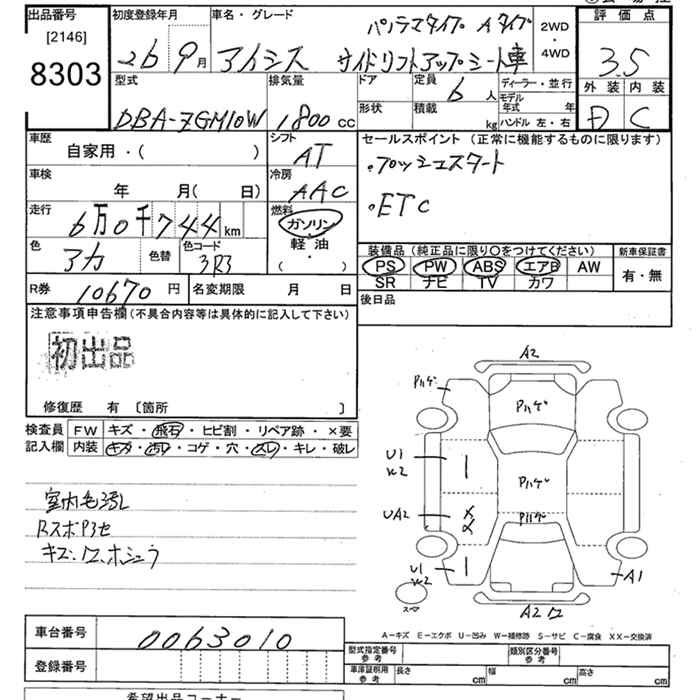 出品番号 初度登録年月 車名・グレード 評価点
[2146] 8303
26 9月 アイシス パノラマタイプ Aタイプ
サイドリフトアップシート車
2WD・4WD
3.5
型式 排気量 ドア 定員 6人 ディーラー・並行 外装 内装
DBA-ZGM10W 1800cc 形状 積載 kg モデル年式 年 ハンドル 左・右 D C
車歴 シフト セールスポイント(正常に機能するものに限ります)
自家用・( ) AT ・プッシュスタート
車検 冷房
年 月( 日) AAC ・ETC
走行 燃料
6万0千744km ガソリン・軽油・( )
色 色替 色コード
アカ 3R3
装備品(純正品に限り○をつけてください) 新車保証書
PS PW ABS エアB AW 有・無
SR ナビ TV カワ
R券 10670円 名変期限 月 日 後日品
注意事項申告欄(不具合内容等は具体的に記入して下さい)
初出品
修復歴 有〔箇所 〕
検査員記入欄 FW キズ・飛石・ヒビ割・リペア跡・×要
内装 キズ・汚レ・コゲ・穴・スレ・キレ・破レ
A2
Pハゲ Pハゲ
U1
W2
Pハゲ
UA2 Pハゲ
U1
W2 A1
スマ A2
キズ
A―キズ E―エクボ U―凹み W―補修跡 S―サビ C―腐食 XX―交換済
車台番号 0063010
登録番号
型式指定番号 参考 類別区分番号 参考
車庫証明用 参考 長さ cm 幅 cm 高さ cm
希望出品コーナー